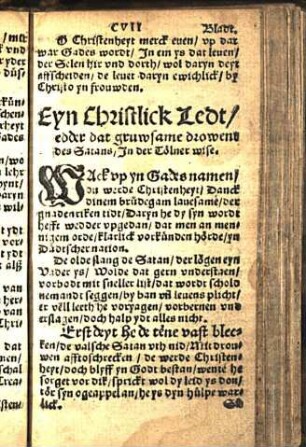 CVII Bladt.
O Christenheyt merck even/ vp dat
war Gades wordt/ In em ys dat leuen/
der Selen hir vnd dorth/ wol daryn deyt
affscheiden/ de leuet daryn ewichlick/ by
Christo yn frouwden.
Eyn Christlick Ledt/
edder dat gruwsame drowent
des Satans/ In der Tölner wise.
WAck vp yn Gades namen/
du werde Christenheyt/ Danck
dinem brüdegam lauesame/ der
gnadenriken tidt/ Daryn he dy syn wordt
hefft wedder vpgedan/ dat men an men=
nigem orde/ klarlick vorkünden hörde/ yn
Düdtscher nation.
De olde slang de Satan/ der lögen eyn
Vader ys/ Wolde dat gern vnderstaen/
vorbodt mit sneller list/ dat wordt schold
nemandt seggen/ by ban vñ leuens plicht/
er vell leeth he voryagen/ vorbernen vnd
erslagen/ doch halp ydt alles nicht.
Erst deyt he de tëne vast blec=
ken/ de valsche Satan vth nid/ Mit drou=
wen afftoschrecken/ de werde Christen=
heyt/ doch blyff yn Godt bestan/ wente he
sorget vor dik/ sprickt wol dy leid ys don/
tör syn ogeappel an/ he ys dyn hülpe war=
lick.